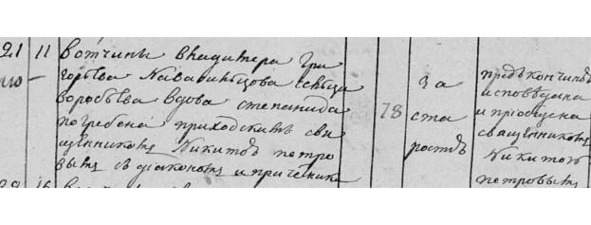 21 11 вотчины владимера гри
горьева Навасильцова сельца
воробьева вдова степанида
погребена приходскимъ свя
щенникомъ Никитою петро
вымъ съ дiакономъ и причетники
78
за
ста
ростъ
предъ кончиною
исповѣдана
и приобщена
священникомъ
Никитою
петровымъ